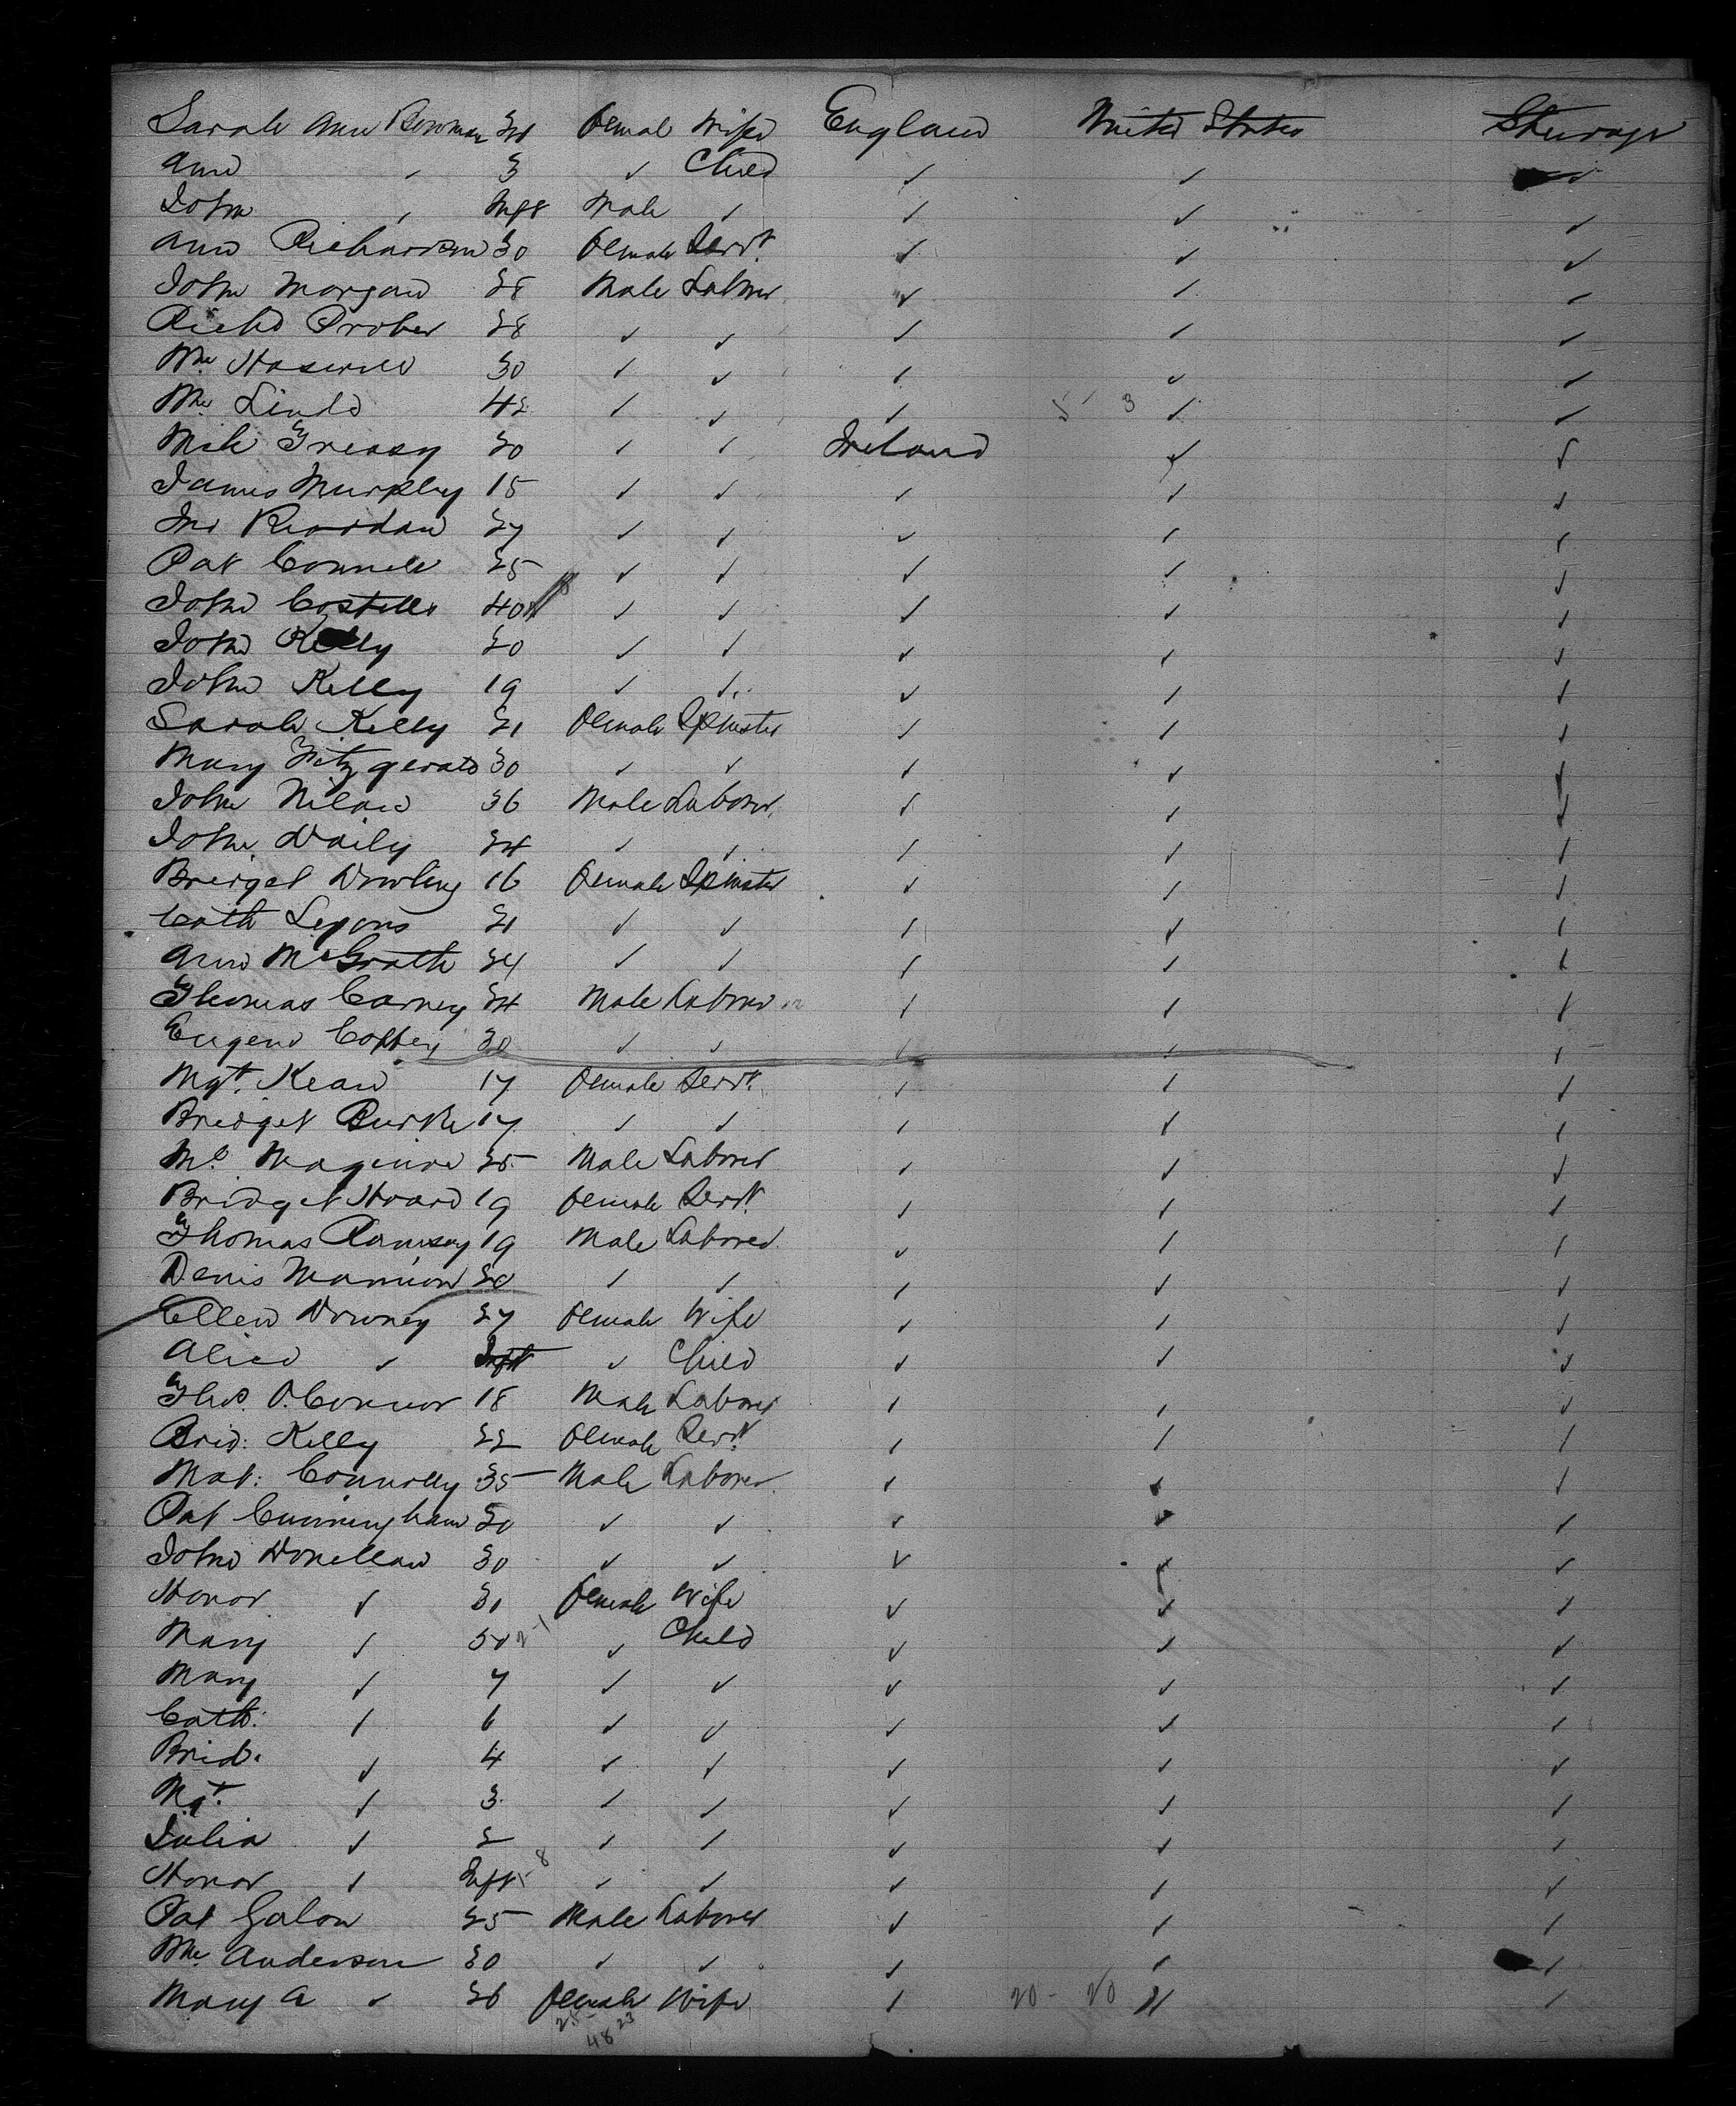 Sarah Ann Bowman 24 Female Wife England United States Steerage
Ann " 3 " Child " " "
John " Inft Male " " " "
Ann Richardson 30 Female Servt. " " "
John Morgan 28 Male Labrer " " "
Richd Prober 28 " " " " "
Wm 30 " " " " "
Wm 42 " " " 5 3 " "
Mik Greasy 20 " " Ireland " "
James Murphy 15 " " " " "
Jno Riordan 27 " " " " "
Pat Connell 25 " " " " "
John Costello 40 " " " " "
John Kelly 20 " " " " "
John Kelly 19 " " " " "
Sarah Kelly 21 Female Spinster " " "
Mary Fitzgerald 30 " " " " "
John Nilan 36 Male Laborer " " "
John Daily 24 " " " " "
Bridget Dowling 16 Female Spinster " " "
Cath Lyons 21 " " " " "
Ann McGrath 24 " " " " "
Thomas Carney 24 Male Laborer " " "
Eugene Coffey 30 " " " " "
Mgt. Kean 17 Female Servt. " " "
Bridget Burke 17 " " " " "
Ml. Maguire 25 Male Laborer " " "
Bridget Hoard 19 Female Servt. " " "
Thomas Ramsey 19 Male Laborer " " "
Denis Mannion 20 " " " " "
Ellen Downey 27 Female Wife " " "
Alice " Inft " Child " " "
Thos. O.Connor 18 Male Laborer " " "
Brid: Kelly 22 Female Servt. " " "
Mat: Connolly 35 Male Laborer " " "
Pat Cunningham 20 " " " " "
John Donellan 30 " " " " "
Honor " 31 Female Wife " " "
Mary " " Child " " "
Mary " 7 " " " " "
Cath: " 6 " " " " "
Brid. " 4 " " " " "
Mgt. " 3 " " " " "
Julia " 2 " " " " "
Honor " Inft 8 " " " " "
Pat Galon 25 Male Laborer " " "
Wm Anderson 30 " " " " "
Mary A " 26 Female Wife " 20 - 20 " "
25 23
48